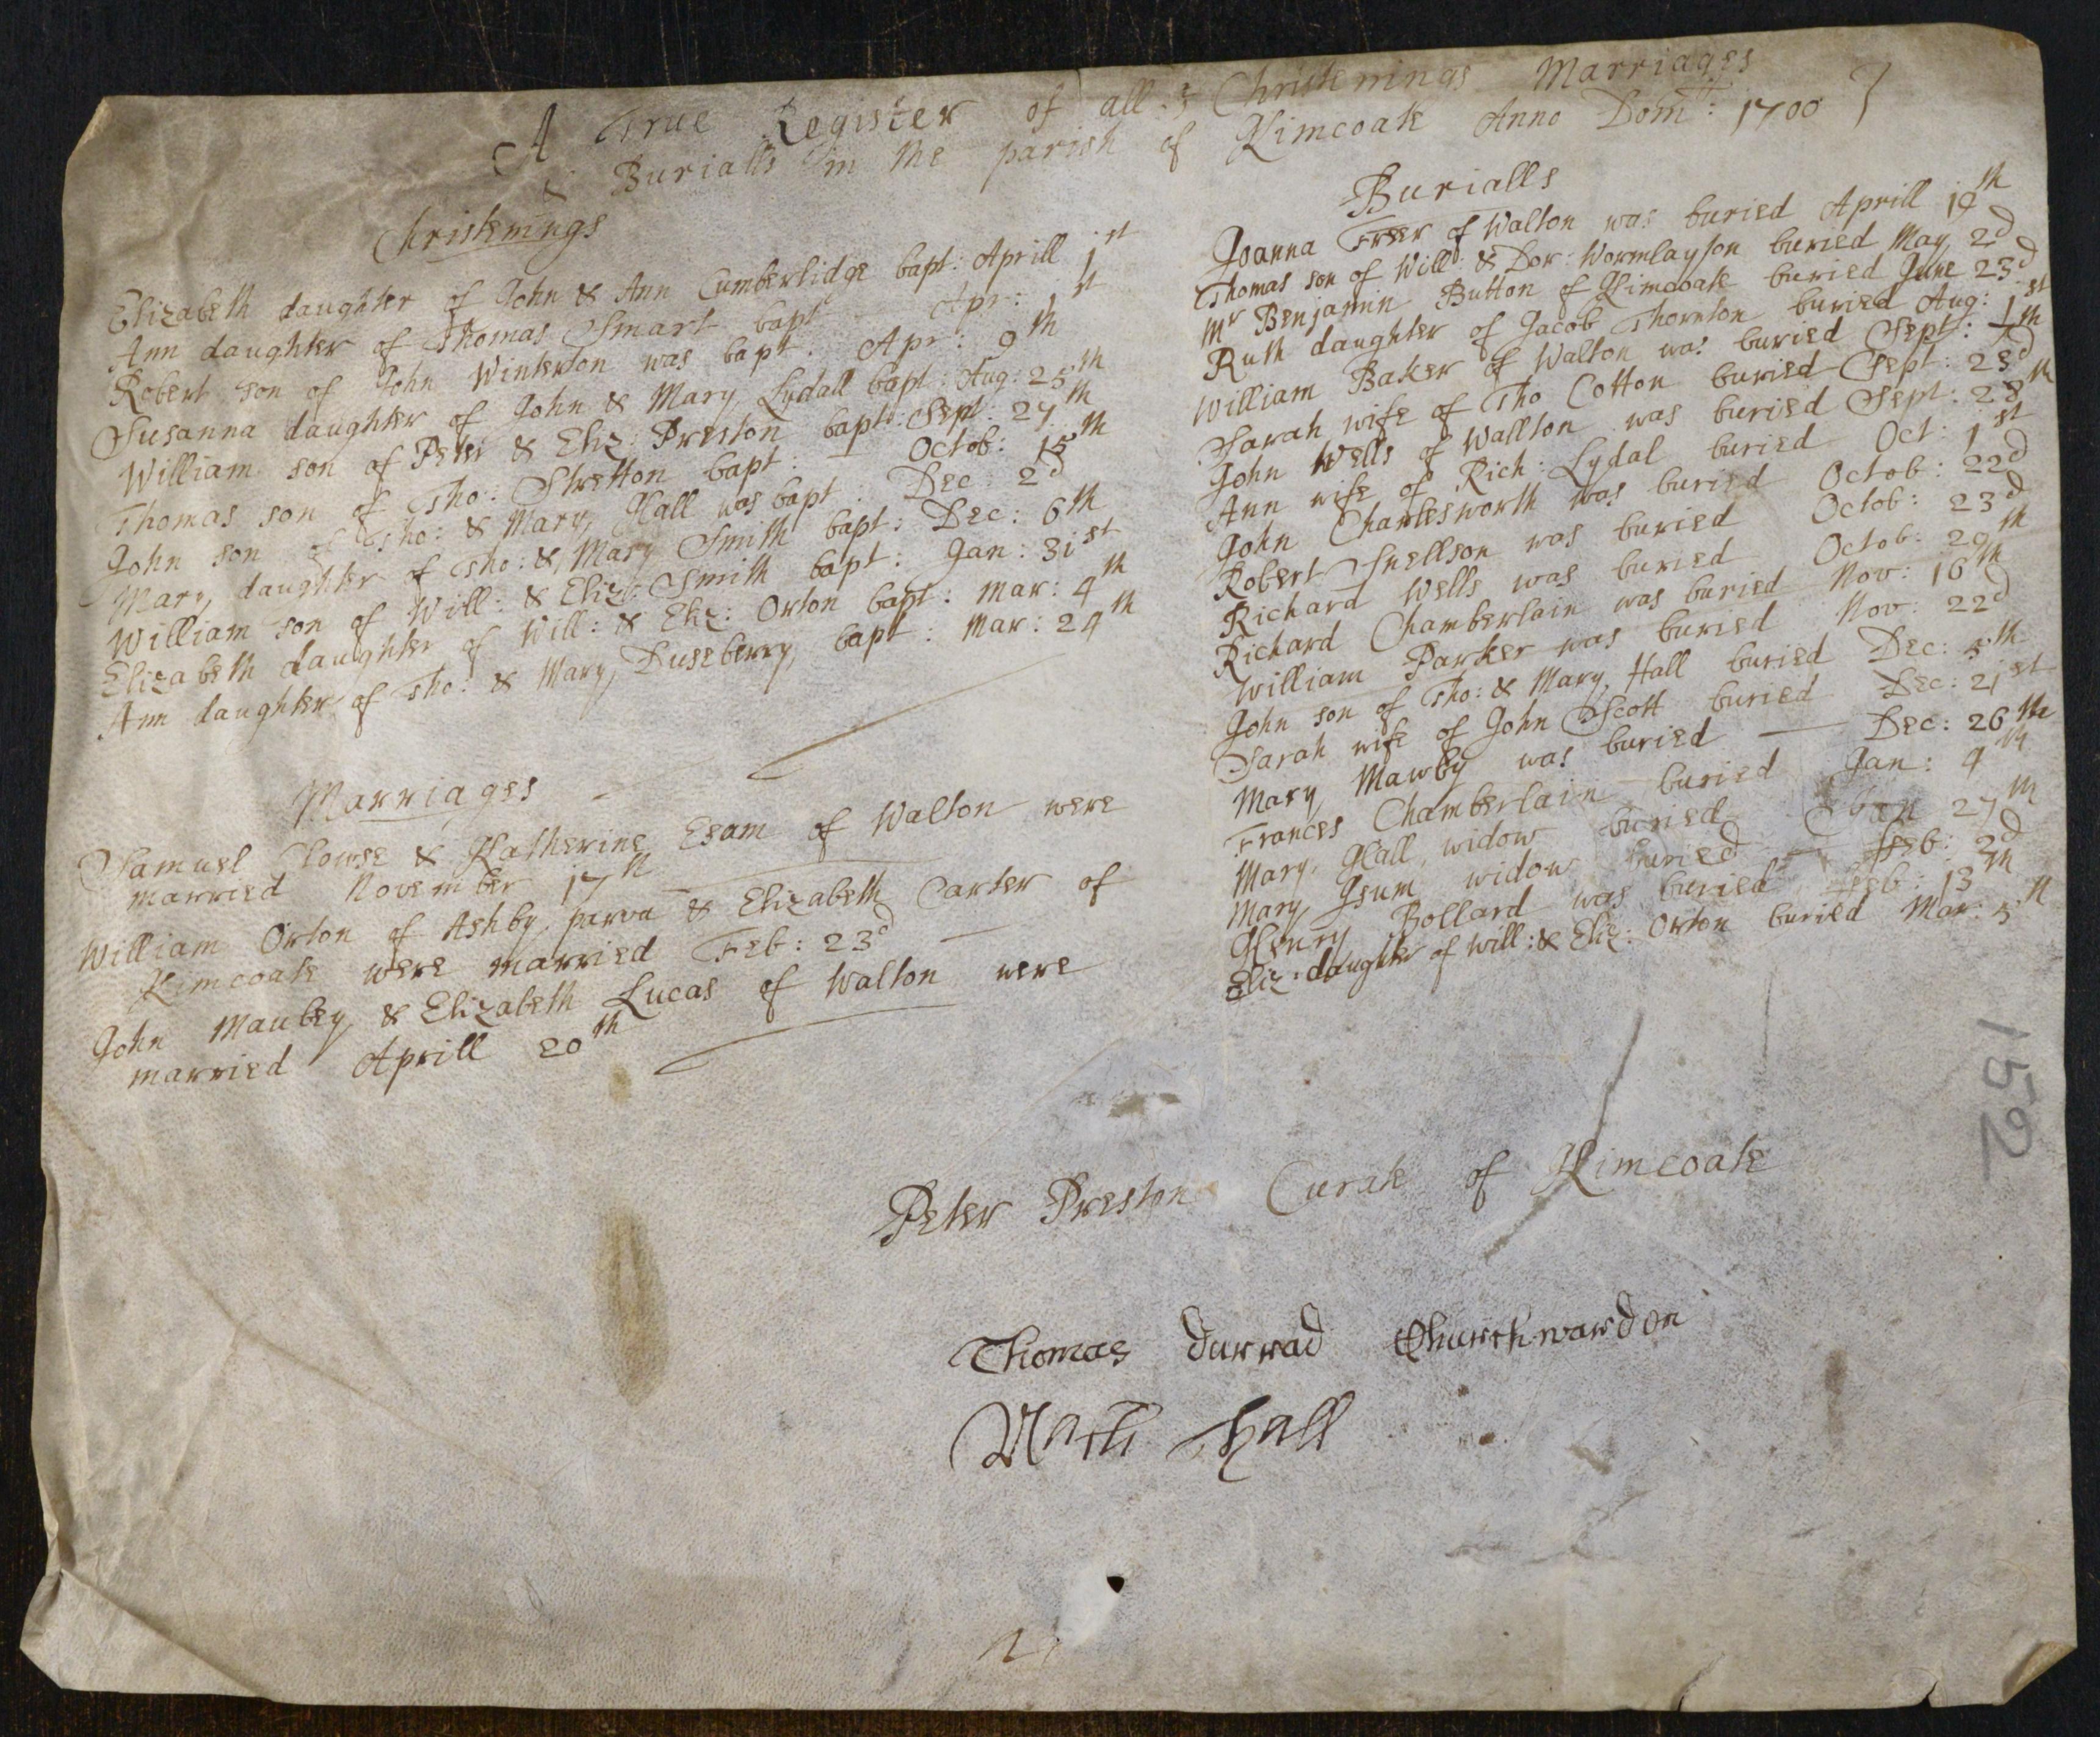 A True Register of all ye Christenings Marriages
& Burialls in the parish of Kimcoate Anno Dom: 1700
Christenings
Elizabeth daughter of John & Ann Cumberlidge bapt: Aprill 1st
Ann daughter of Thomas Smart bapt Apr: 1st
Robert son of John Winterton was bapt. Apr: 9th
Susanna daughter of John & Mary Lydall bapt: Aug: 25th
William son of Peter & Eliz: Preston bapt: Sept: 27th
Thomas son of Tho: Stretton bapt: Octob: 15th
John son of Tho: & Mary Hall was bapt: Dec: 2d
Mary daughter of Tho: & Mary Smith bapt: Dec: 6th
William son of Will: & Eliz: Smith bapt: Jan: 31st
Elizabeth daughter of Will: & Eliz: Orton bapt: Mar: 4th
Ann daughter of Tho: & Mary Duseberry bapt: Mar: 24th
Marriages
Samuel Clowse & Katherine Esam of Walton were
married November 17th
William Orton of Ashby parva & Elizabeth Carter of
Kimcoate were married Feb: 23d
John Maubey & Elizabeth Lucas of Walton were
married Aprill 20th
Burialls
Joanna Freer of Walton was buried Aprill 19th
Thomas son of Will: & Dor: Wormlayson buried May 2d
Mr Benjamin Button of Kimcoate buried June 23d
Ruth daughter of Jacob Thornton buried Aug: 1st
William Baker of Walton was buried Sept:
Sarah wife of Tho Cotton buried Sept: 23d
John Wells of Wallton was buried Sept: 28th
Ann wife of Rich: Lydal buried Oct: 1st
John Charlesworth was buried Octob: 22d
Robert Snellson was buried Octob: 23d
Richard Wells was buried Octob: 29th
Richard Chamberlain was buried Nov: 16th
William Parker was buried Nov: 22d
John son of Tho: & Mary Hall buried Dec: 5th
Sarah wife of John Scott buried Dec: 21st
Mary Mawby was buried Dec: 26th
Frances Chamberlain buried Jan: 4th
Mary Hall widow buried Jan 27th
Mary Isum widow buried Feb: 2d
Henry Bollard was buried Feb: 13th
Eliz: daughter of Will: & Eliz: Orton buried Mar: 5th
152
Peter Preston Curate of Kimcoate
Thomas Durrad Churchwardon
Hall